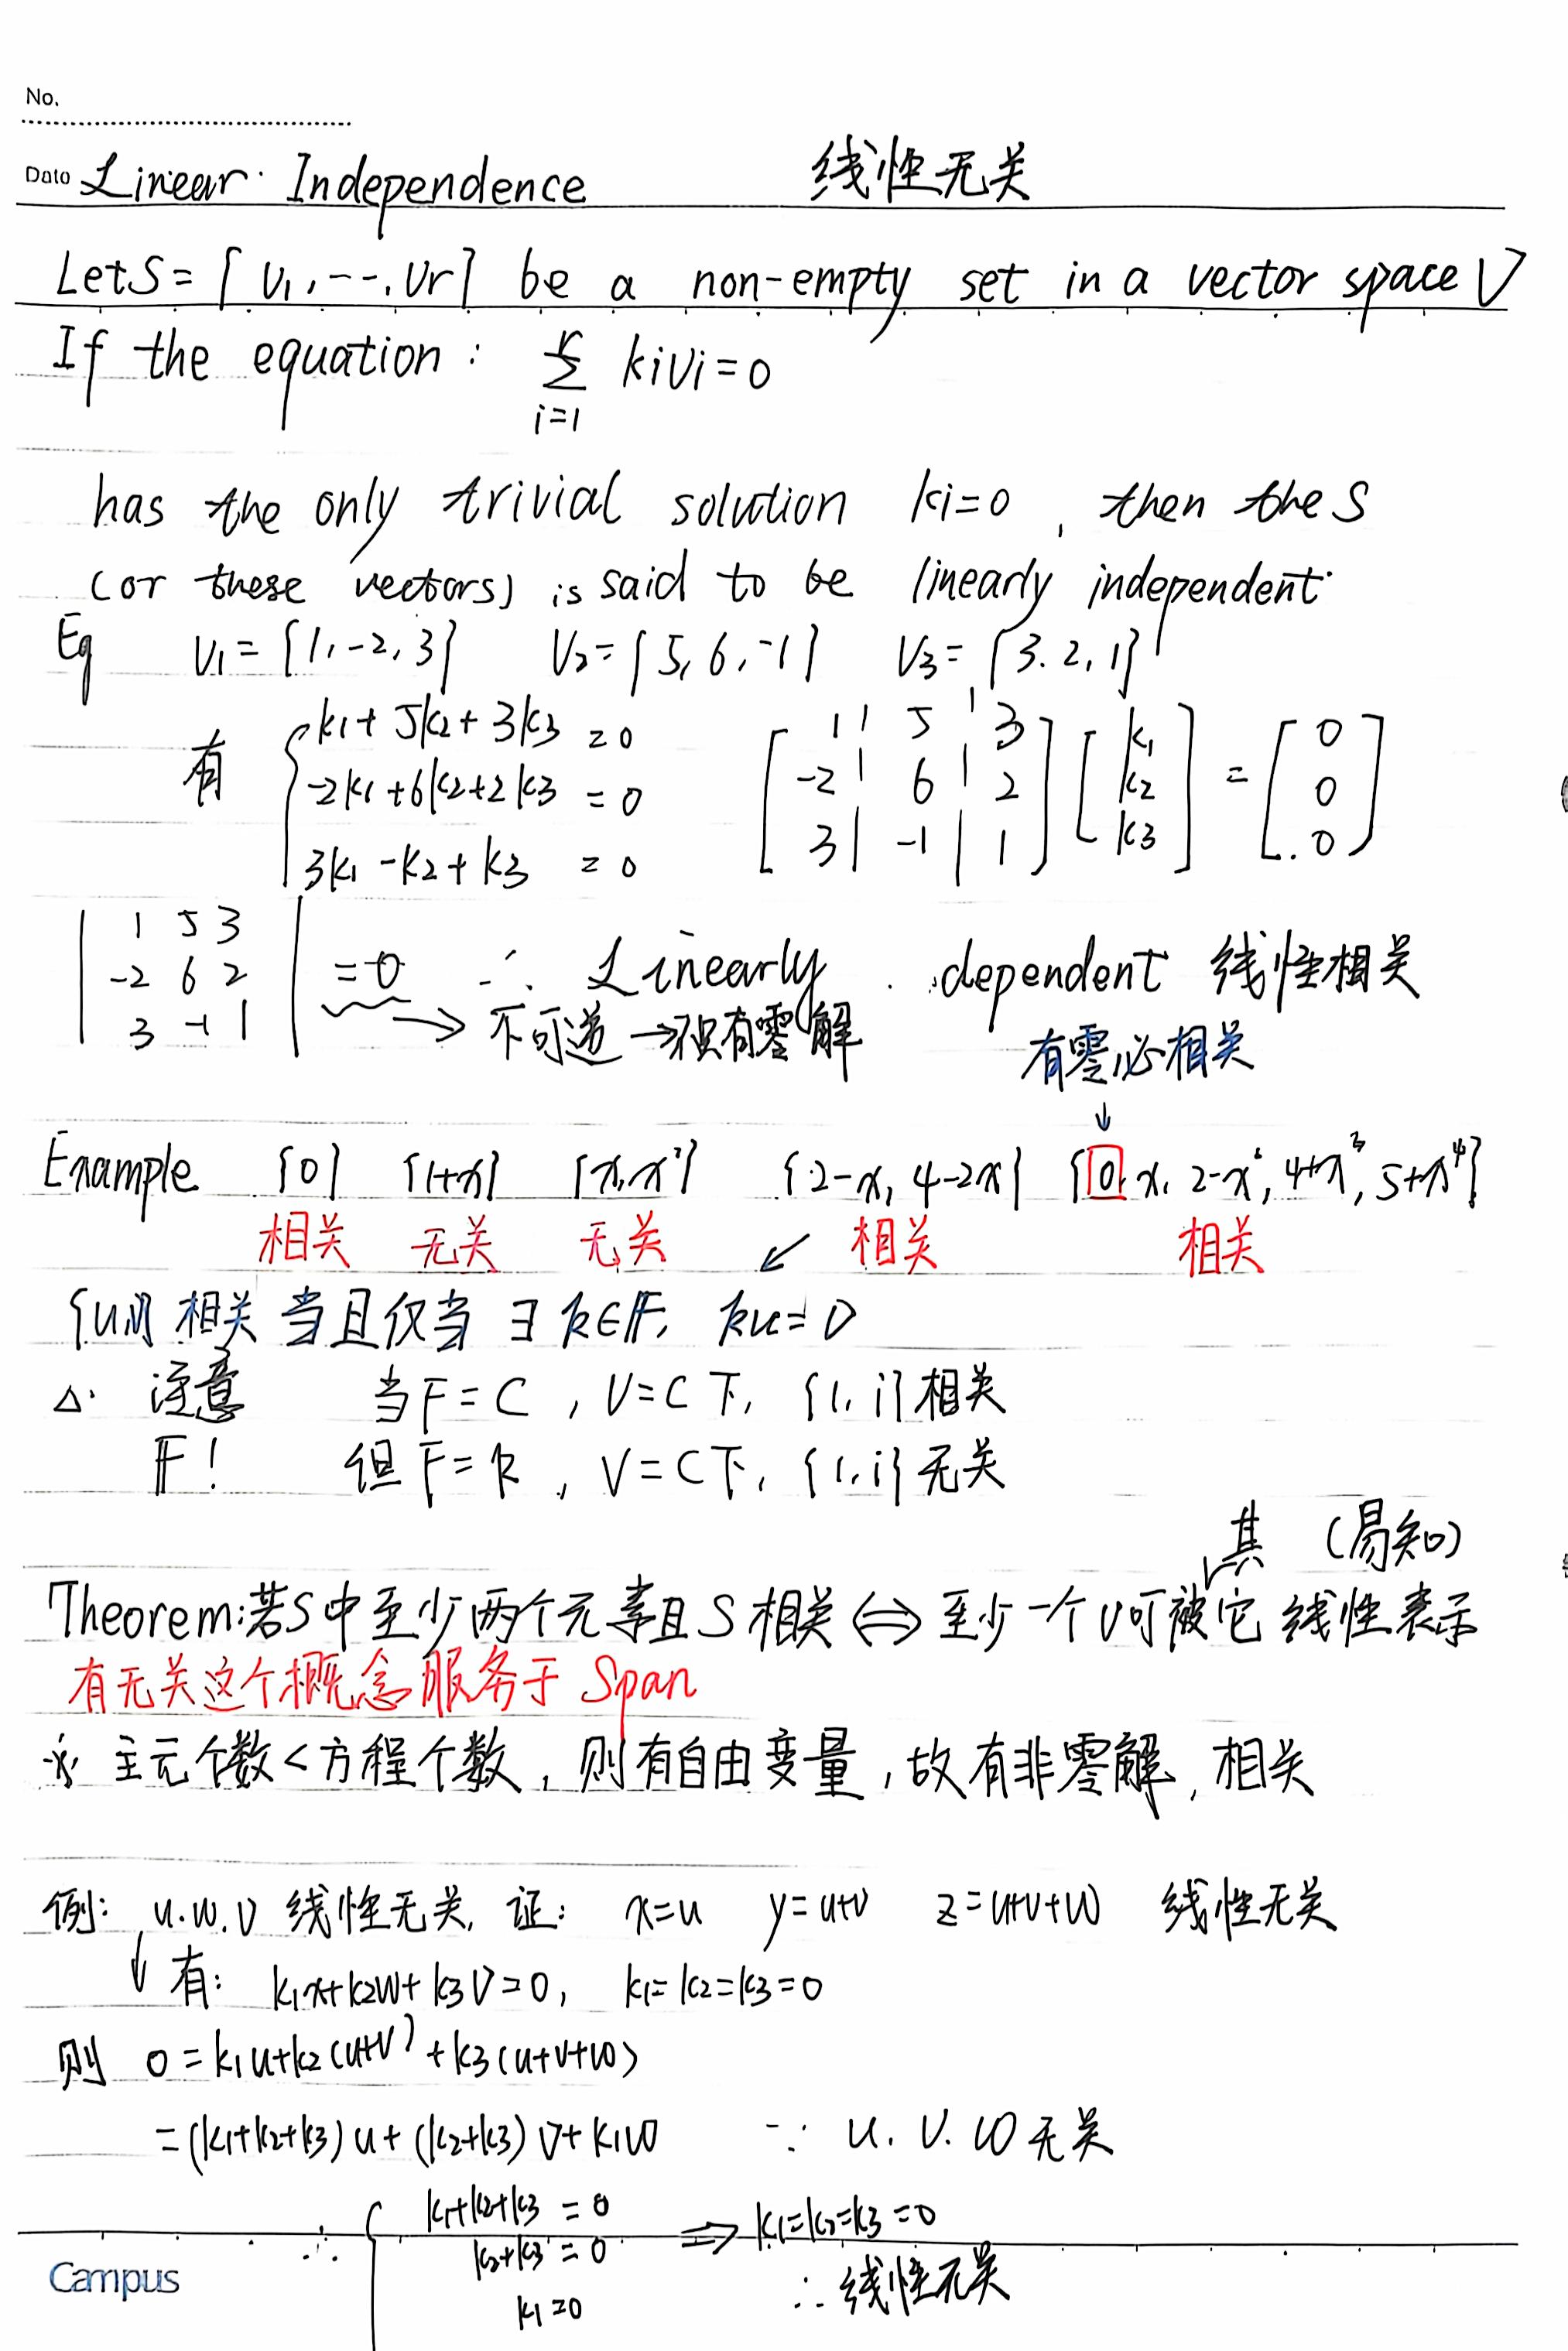 No.
Date Linear Independence 线性无关
Let S = { v₁, ---, vr } be a non-empty set in a vector space V
If the equation : \sum_{i=1}^{r} kivi = 0
has the only trivial solution ki=0 , then the S
(or these vectors) is said to be linearly independent.
Eg v₁ = {1, -2, 3} v₂ = {5, 6, -1} v₃ = {3. 2, 1}
有 { k₁ + 5k₂ + 3k₃ = 0
-2k₁ + 6k₂ + 2k₃ = 0
3k₁ - k₂ + k₃ = 0
[ 1 5 3
-2 6 2
3 -1 1 ] [ k₁
k₂
k₃ ] = [ 0
0
0 ]
| 1 5 3
-2 6 2
3 -1 1 | = 0 ∴ Linearly dependent 线性相关
→ 不可逆 → 不只有零解 有零必相关
↓
Example {0} {1+x} {x, x²} {2-x, 4-2x} {0, x, 2-x², 4+x³, 5+x⁴}
相关 无关 无关 ↙ 相关 相关
相关 当且仅当 ∃ k∈F, ku=0
△. 注意 当F = C , V=C 下, {1, i} 相关
F! 但F=R , V=C下, {1, i} 无关
其 (易知)
Theorem:若S中至少两个元素且S相关 ⇔ 至少一个v可被它线性表示
有无关这个概念服务于 Span
※ 主元个数<方程个数, 则有自由变量, 故有非零解, 相关
例: u.w.v 线性无关, 证: x=u y=u+v z=u+v+w 线性无关
↓ 有: k₁x+k₂w+k₃v=0, k₁=k₂=k₃=0
则 0=k₁u+k₂(u+v)+k₃(u+v+w)
=(k₁+k₂+k₃)u+(k₂+k₃)v+k₁w ∵ u. v. w无关
∴ { k₁+k₂+k₃ = 0
k₂+k₃ = 0
k₁=0
⇒ k₁=k₂=k₃=0
∴ 线性无关
Campus